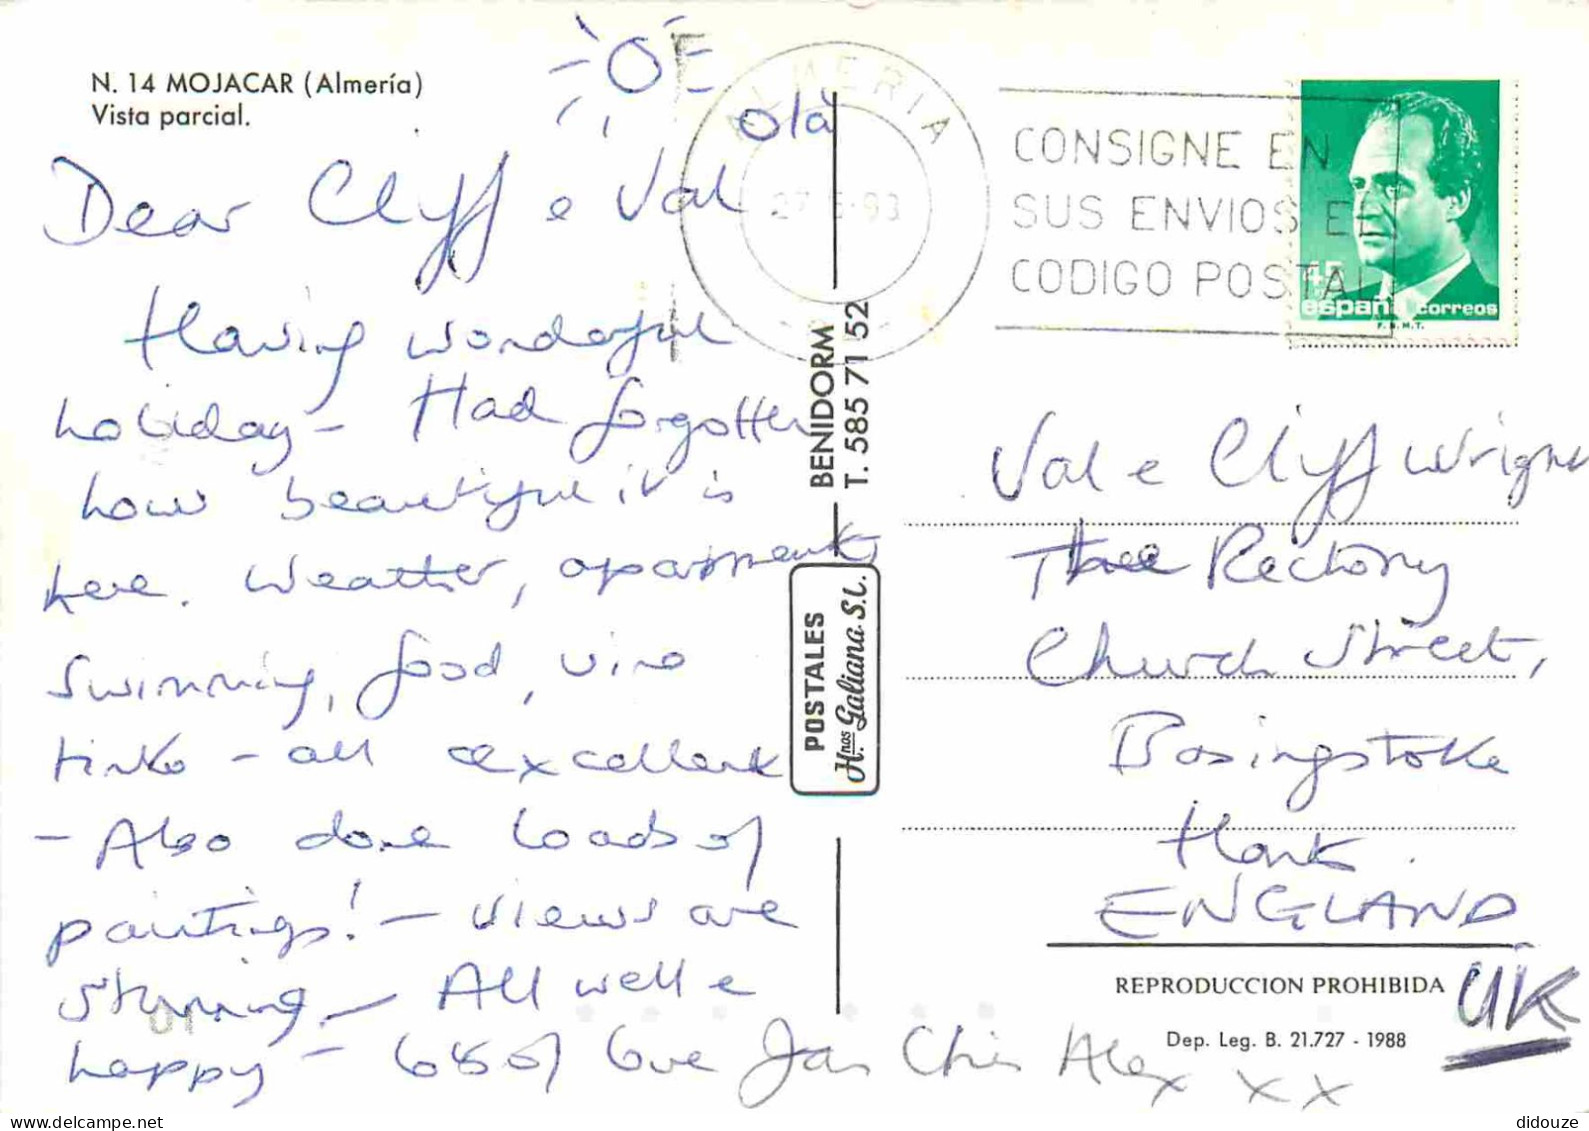 N. 14 MOJACAR (Almería)
Vista parcial.
olà
Dear Clyff e Val
Having wonderful
holiday – Had forgotten
how beautiful it is
here. Weather, apartment,
swimming, food, vino
tinto – all excellent
– Also done loads of
paintings! – views are
stunning – All well e
happy – lots of love Jan Chris Alex x x
BENIDORM
T. 585 71 52
POSTALES
Hnos. Galiana S.L.
ALMERIA
27 93
CONSIGNE EN
SUS ENVIOS EL
CODIGO POSTAL
45
españa correos
F.N.M.T.
Val e Clyff
The Rectory
Church Street,
Basingstoke
Hank.
ENGLAND
UK
REPRODUCCION PROHIBIDA
Dep. Leg. B. 21.727 - 1988
didouze